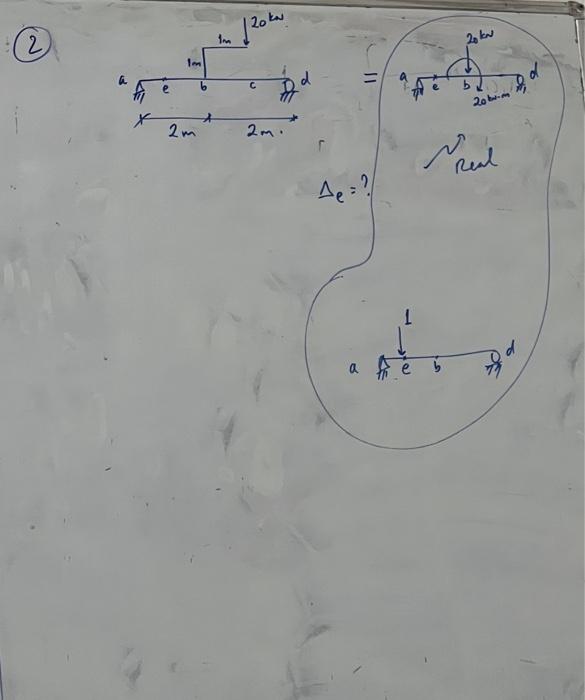 2
20 kN
1m
1m
a e b c d
2m 2m.
=
20 kN
a e b d
20 kN-m
Real
Δe = ?
1
a e b d